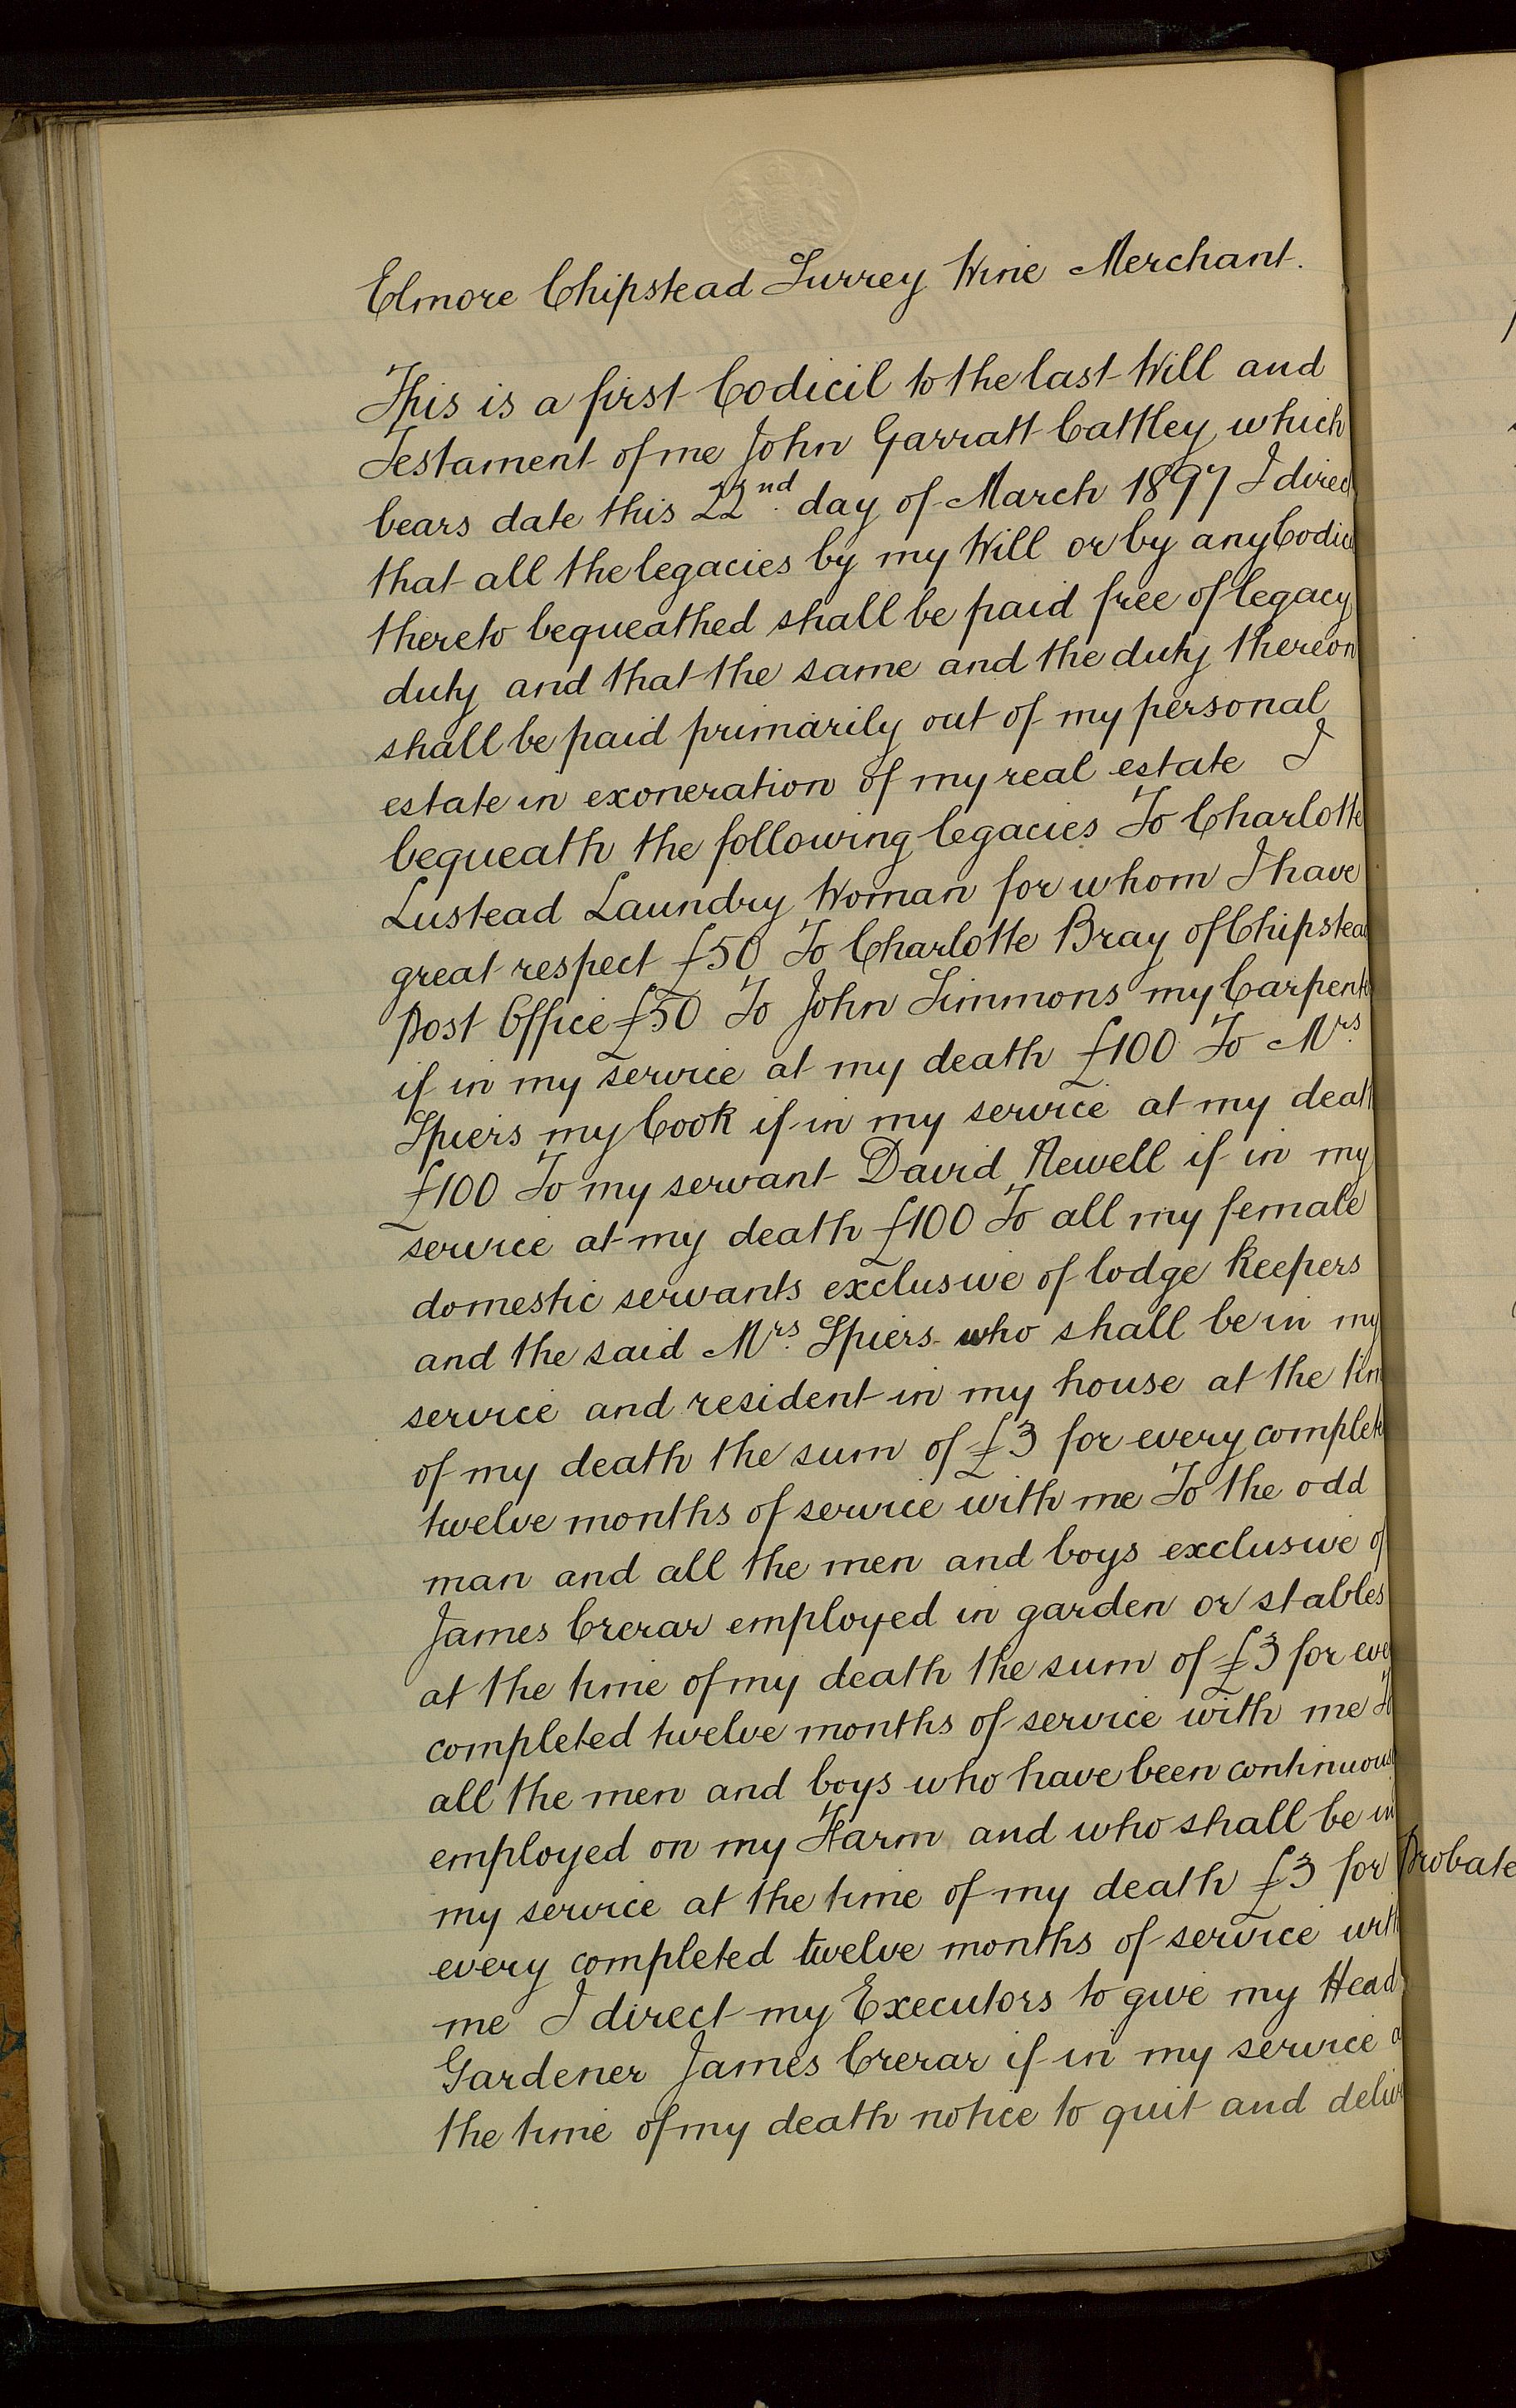 Elmore Chipstead Surrey Wine Merchant.
This is a first Codicil to the last Will and
Testament of me John Garratt Cattley which
bears date this 22nd. day of March 1897 I direc
that all the legacies by my Will or by any Codic
thereto bequeathed shall be paid free of legacy
duty and that the same and the duty thereon
shall be paid primarily out of my personal
estate in exoneration of my real estate I
bequeath the following legacies To Charlotte
Lustead Laundry Woman for whom I have
great respect £50 To Charlotte Bray of Chipstead
Post Office £50 To John Simmons my Carpente
if in my service at my death £100 To Mrs.
Spiers my Cook if in my service at my death
£100 To my servant David Newell if in my
service at my death £100 To all my female
domestic servants exclusive of lodge keepers
and the said Mrs. Spiers who shall be in my
service and resident in my house at the tim
of my death the sum of £3 for every complete
twelve months of service with me To the odd
man and all the men and boys exclusive of
James Crerar employed in garden or stables
at the time of my death the sum of £3 for eve
completed twelve months of service with me To
all the men and boys who have been continuous
employed on my Farm and who shall be in
my service at the time of my death £3 for
Probate
every completed twelve months of service with
me I direct my Executors to give my Head
Gardener James Crerar if in my service a
the time of my death notice to quit and delive